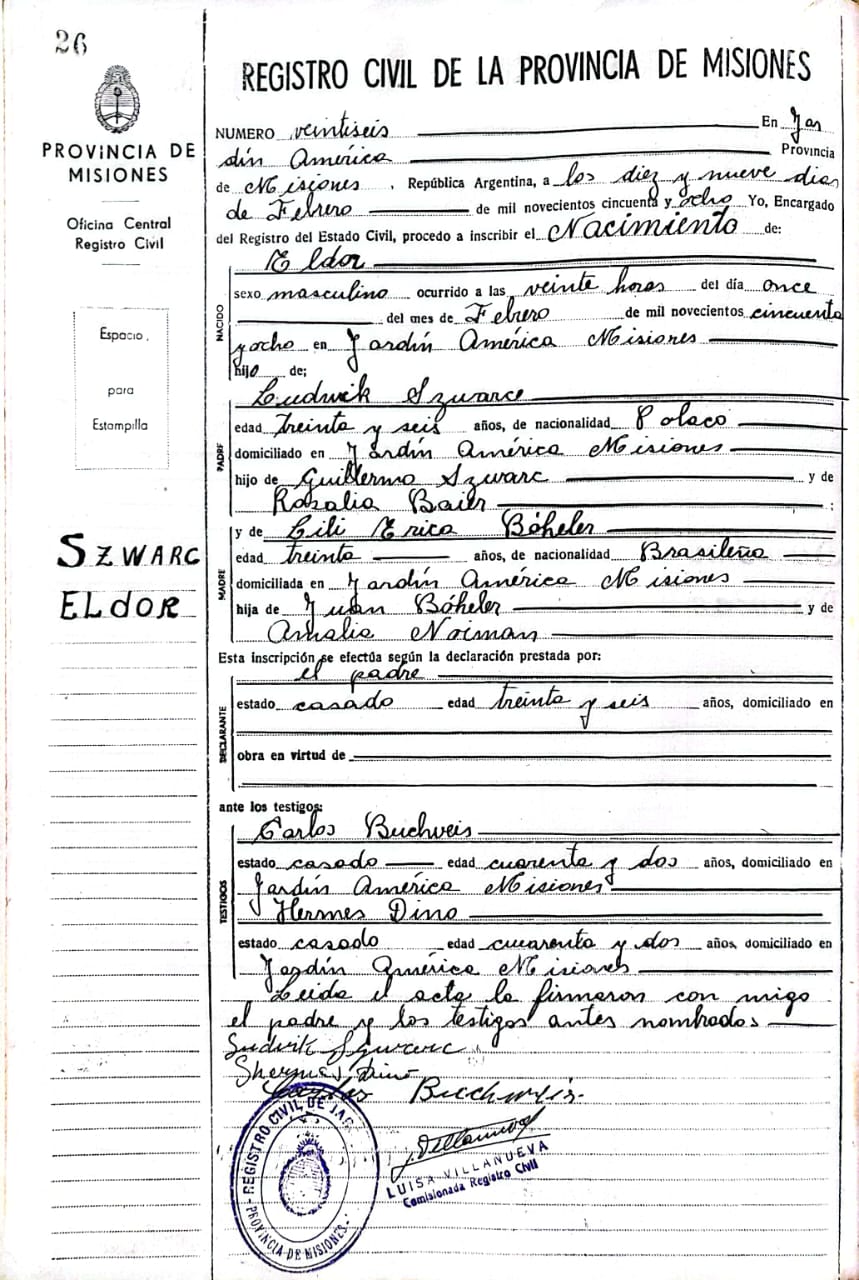 26
PROVINCIA DE
MISIONES
Oficina Central
Registro Civil
Espacio
para
Estampilla
SZWARC
ELdOR
REGISTRO CIVIL DE LA PROVINCIA DE MISIONES
NUMERO veintiseis En Jar
dín América Provincia
de Misiones, República Argentina, a los diez y nueve dias
de Febrero de mil novecientos cincuenta y ocho Yo, Encargado
del Registro del Estado Civil, procedo a inscribir el Nacimiento de:
Eldor
NACIDO
sexo masculino ocurrido a las veinte horas del día once
del mes de Febrero de mil novecientos cincuenta
y ocho en Jardín América Misiones
hijo de;
Ludwik Szwarc
PADRE
edad treinta y seis años, de nacionalidad Polaco
domiciliado en Jardín América Misiones
hijo de Guillermo Szwarc y de
Rosalia Baier ;
y de Lili Erica Bóheler
MADRE
edad treinta años, de nacionalidad Brasileña
domiciliada en Jardín América Misiones
hija de Juan Bóheler y de
Amalia Noiman
Esta inscripción se efectúa según la declaración prestada por:
el padre
DECLARANTE
estado casado edad treinta y seis años, domiciliado en
obra en virtud de
ante los testigos:
Carlos Buchveis
TESTIGOS
estado casado edad cuarenta y dos años, domiciliado en
Jardín América Misiones
Hermes Dino
estado casado edad cuarenta y dos años, domiciliado en
Jardín América Misiones
Leida el acta la firmaron con migo
el padre y los testigos antes nombrados
Ludwik Szwarc
Dino
Carlos
J. Villanueva
LUISA VILLANUEVA
Comisionada Registro Civil
REGISTRO CIVIL DE JAR
PROVINCIA DE MISIONES